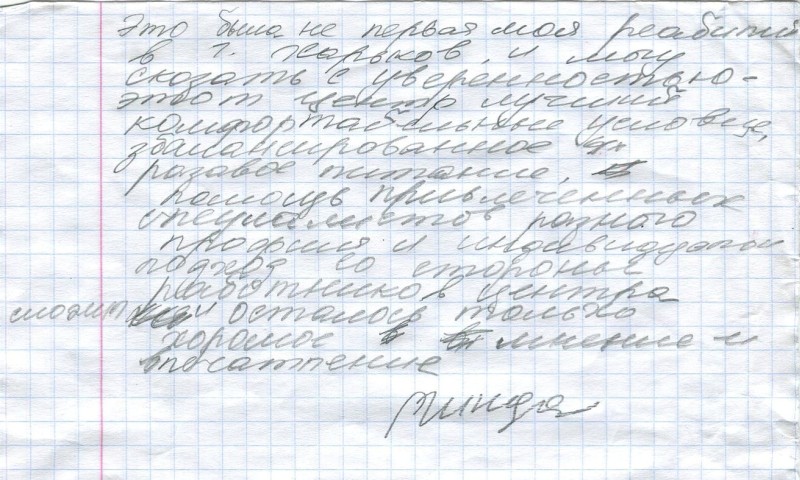 Это была не первая моя реабилит
в г. Харьков, и могу
сказать с уверенностью-
этот центр лучший
комфортабельные условия,
збалансированное
разавое питание,
помощь привлеченных
специалистов разного
профиля и индивидуальн
подход со стороны
работников центра
осталось только
хорошое мнение и
впечатление